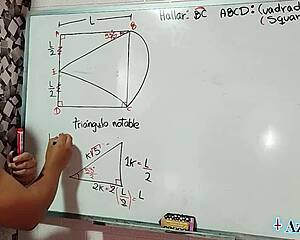 L
Hallar: BC ABCD: Cuadrad
(Squar
A
B
L/2
E
L/2
D
C
triángulo notable
K√5
1K = L/2
2K = 2(L/2) = L
+Az